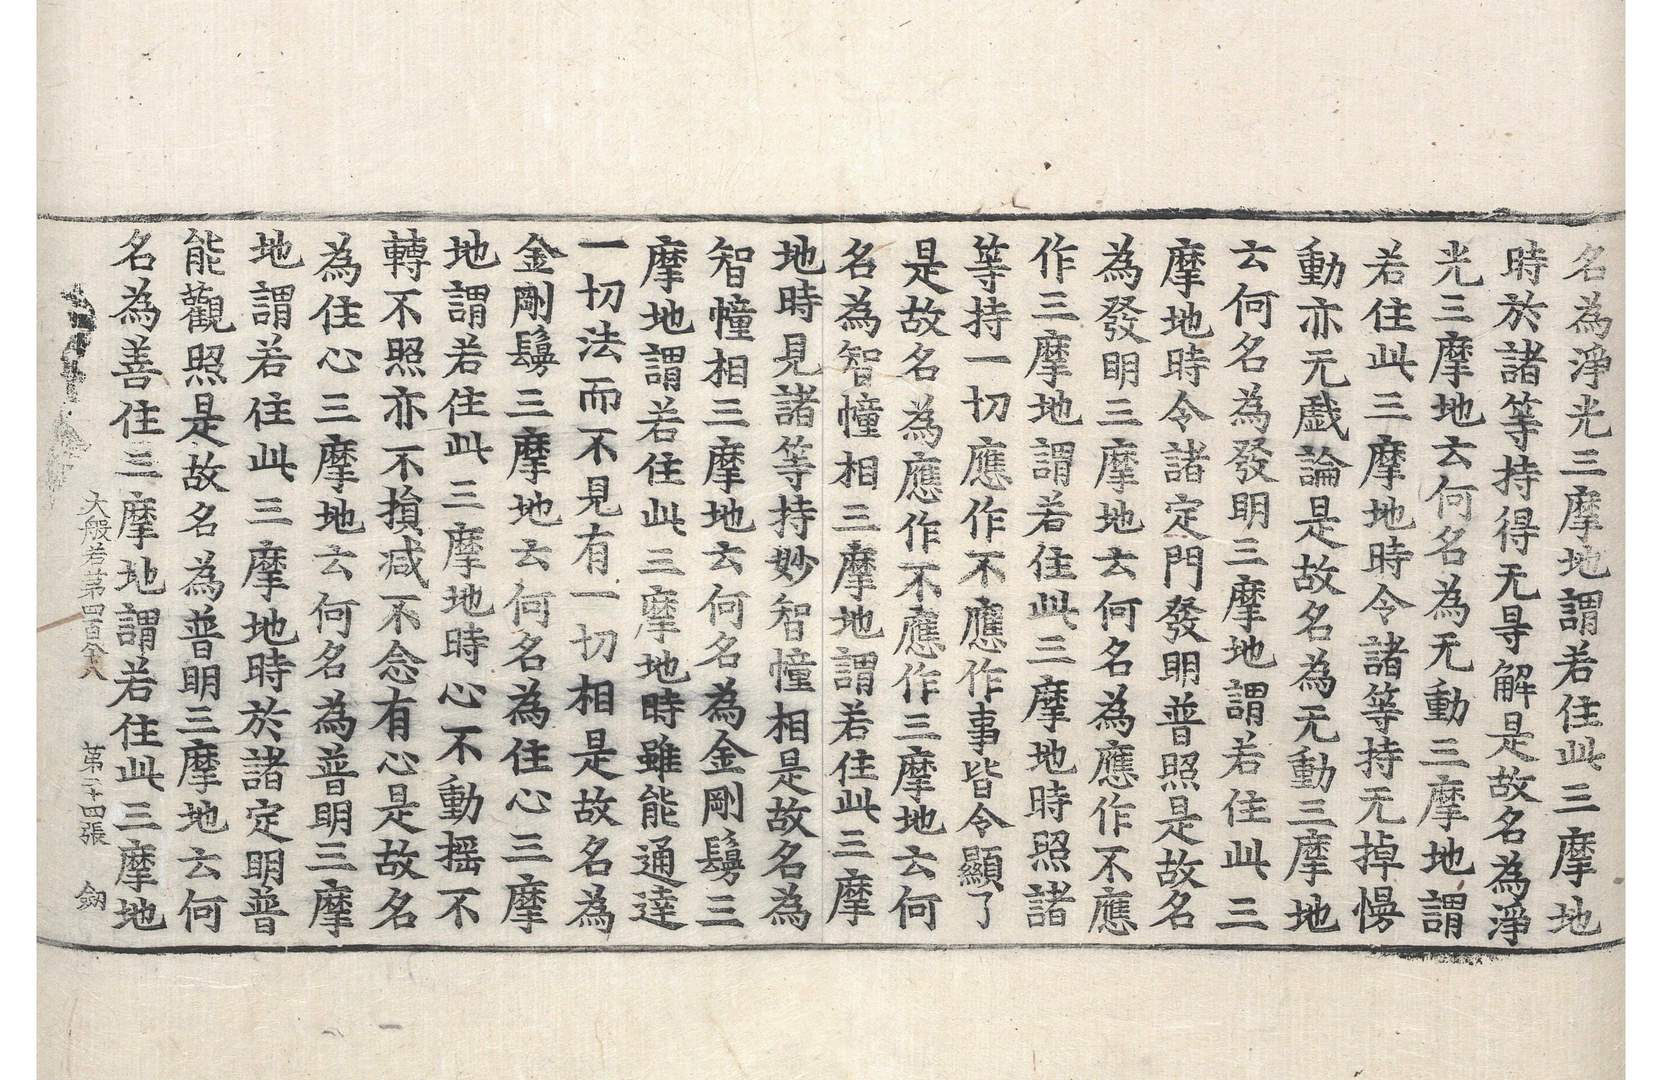 名為淨光三摩地謂若住此三摩地
時於諸等持得无㝵解是故名為淨
光三摩地云何名為无動三摩地謂
若住此三摩地時令諸等持无掉慢
動亦无戲論是故名為无動三摩地
云何名為發明三摩地謂若住此三
摩地時令諸定門發明普照是故名
為發明三摩地云何名為應作不應
作三摩地謂若住此三摩地時照諸
等持一切應作不應作事皆令顯了
是故名為應作不應作三摩地云何
名為智幢相三摩地謂若住此三摩
地時見諸等持妙智幢相是故名為
智幢相三摩地云何名為金剛鬘三
摩地謂若住此三摩地時雖能通達
一切法而不見有一切相是故名為
金剛鬘三摩地云何名為住心三摩
地謂若住此三摩地時心不動搖不
轉不照亦不損減不念有心是故名
為住心三摩地云何名為普明三摩
地謂若住此三摩地時於諸定明普
能觀照是故名為普明三摩地云何
名為善住三摩地謂若住此三摩地
大般若第四百 第二十四張 劒